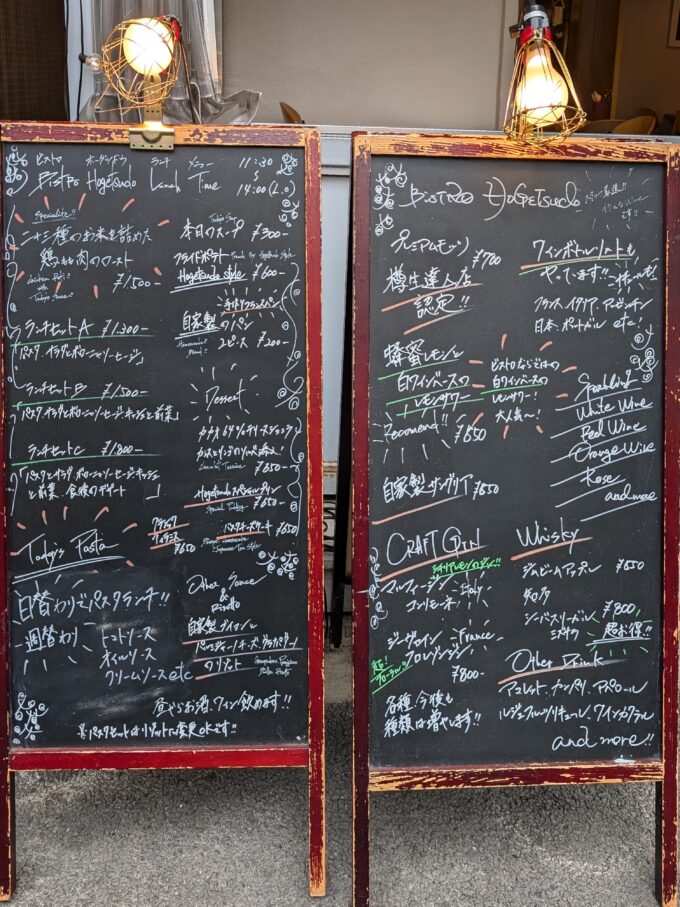 ビストロ ホーゲツドウ ランチ メニュー 11:30
Bistro Hogetsudo Lunch Time 14:00(L.O)
Specialite!!
二十三種のお米を詰めた
鶏もも肉のロースト
¥1,500-
ランチセットA ¥1,300-
「パスタ、サラダ、ボローニャソーセージ」
ランチセットB ¥1,500-
「パスタ、サラダ、ボローニャソーセージ、キッシュと前菜」
ランチセットC ¥1,800-
「パスタ、サラダ、ボローニャソーセージ、キッシュ
と前菜、食後のデザート」
Today's Pasta
日替わりでパスタランチ!!
週替わり
トマトソース
オイルソース
クリームソース etc
Today's Soup
本日のスープ ¥300-
フライドポテト
Hogetsudo style ¥600-
自家製のパン
Homemade Bread!!
2ピース ¥200-
Dessert
カカオ69%のテリーヌショコラ
¥650-
Hogetsudoスペシャルプリン
Special Pudding
¥650-
クラシック
¥650
バスクチーズケーキ ¥650
Other Sauce
&
Risotto
自家製
パルミジャーノチーズ
のリゾット
昼からお酒、ワイン飲めます!!
※パスタセットはリゾットに変更OKです!!
Bistro Hogetsudo
プレミアムモルツ ¥700
樽生達人店
認定!!
ワインボトルリストも
やっています!!
フランス、イタリア、アルゼンチン
日本、ポートガル etc!
蜂蜜レモンと
白ワインベースの
レモンサワー
Recomend!! ¥650
ビストロならではの
白ワインベースの
レモンサワー!
大人気〜!
自家製サングリア ¥650
Sparkling
White Wine
Red Wine
Orange Wine
Rose
and more
CRAFT GIN
シチリアレモンのジン!!
マルフィージン
コンリモーネ
Italy
ジーヴァイン
フロレゾンジン
France
超!
フローラル!!
¥800-
各種、今後も
種類は増やします!!
Whisky
ジムビームアップル ¥650
知多
シーバスリーガル ¥800
ミズナラ
超お得!!
Other Drink
アマレット、カンパリ、アペロール
ルジェフルーツリキュール、ワインカクテル
and more!!